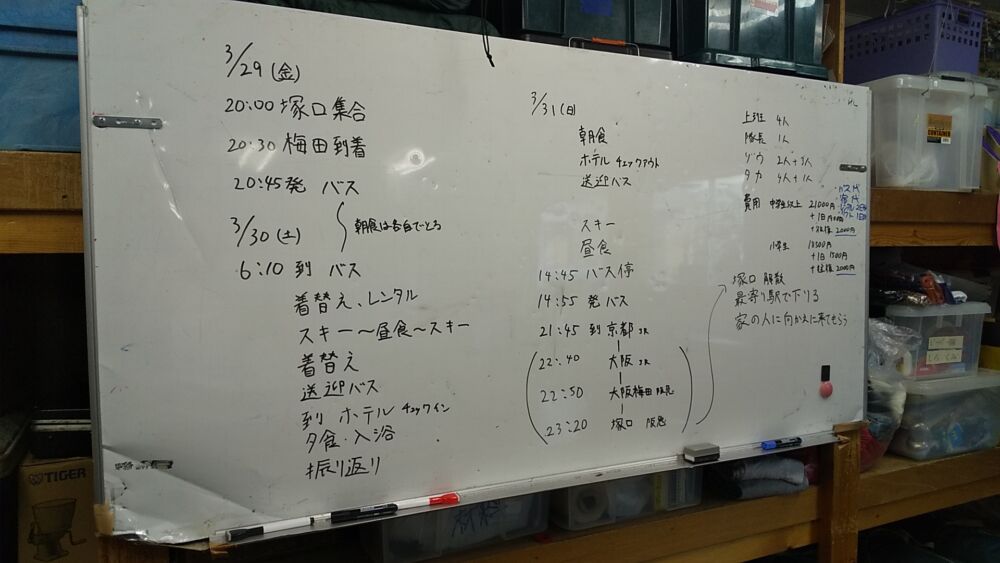 3/29(金)
20:00 塚口集合
20:30 梅田到着
20:45発 バス
朝食は各自でとる
3/30(土)
6:10 到 バス
着替え、レンタル
スキー〜昼食〜スキー
着替え
送迎バス
到 ホテル チェックイン
夕食・入浴
振り返り
3/31(日)
朝食
ホテル チェックアウト
送迎バス
スキー
昼食
14:45 バス停
14:55 発 バス
21:45 到 京都 JR
22:40 大阪 JR
22:50 大阪梅田 阪急
23:20 塚口 阪急
上班 4人
隊長 1人
ゾウ 2人+3人
タカ 4人+1人
費用 中学生以上 21000円
+1日
2000円
小学生
+1日 1500円
2000円
バス代
塚口 解散
最寄り駅で下りる
家の人に向かえに来てもらう
TIGER
CONTAINER